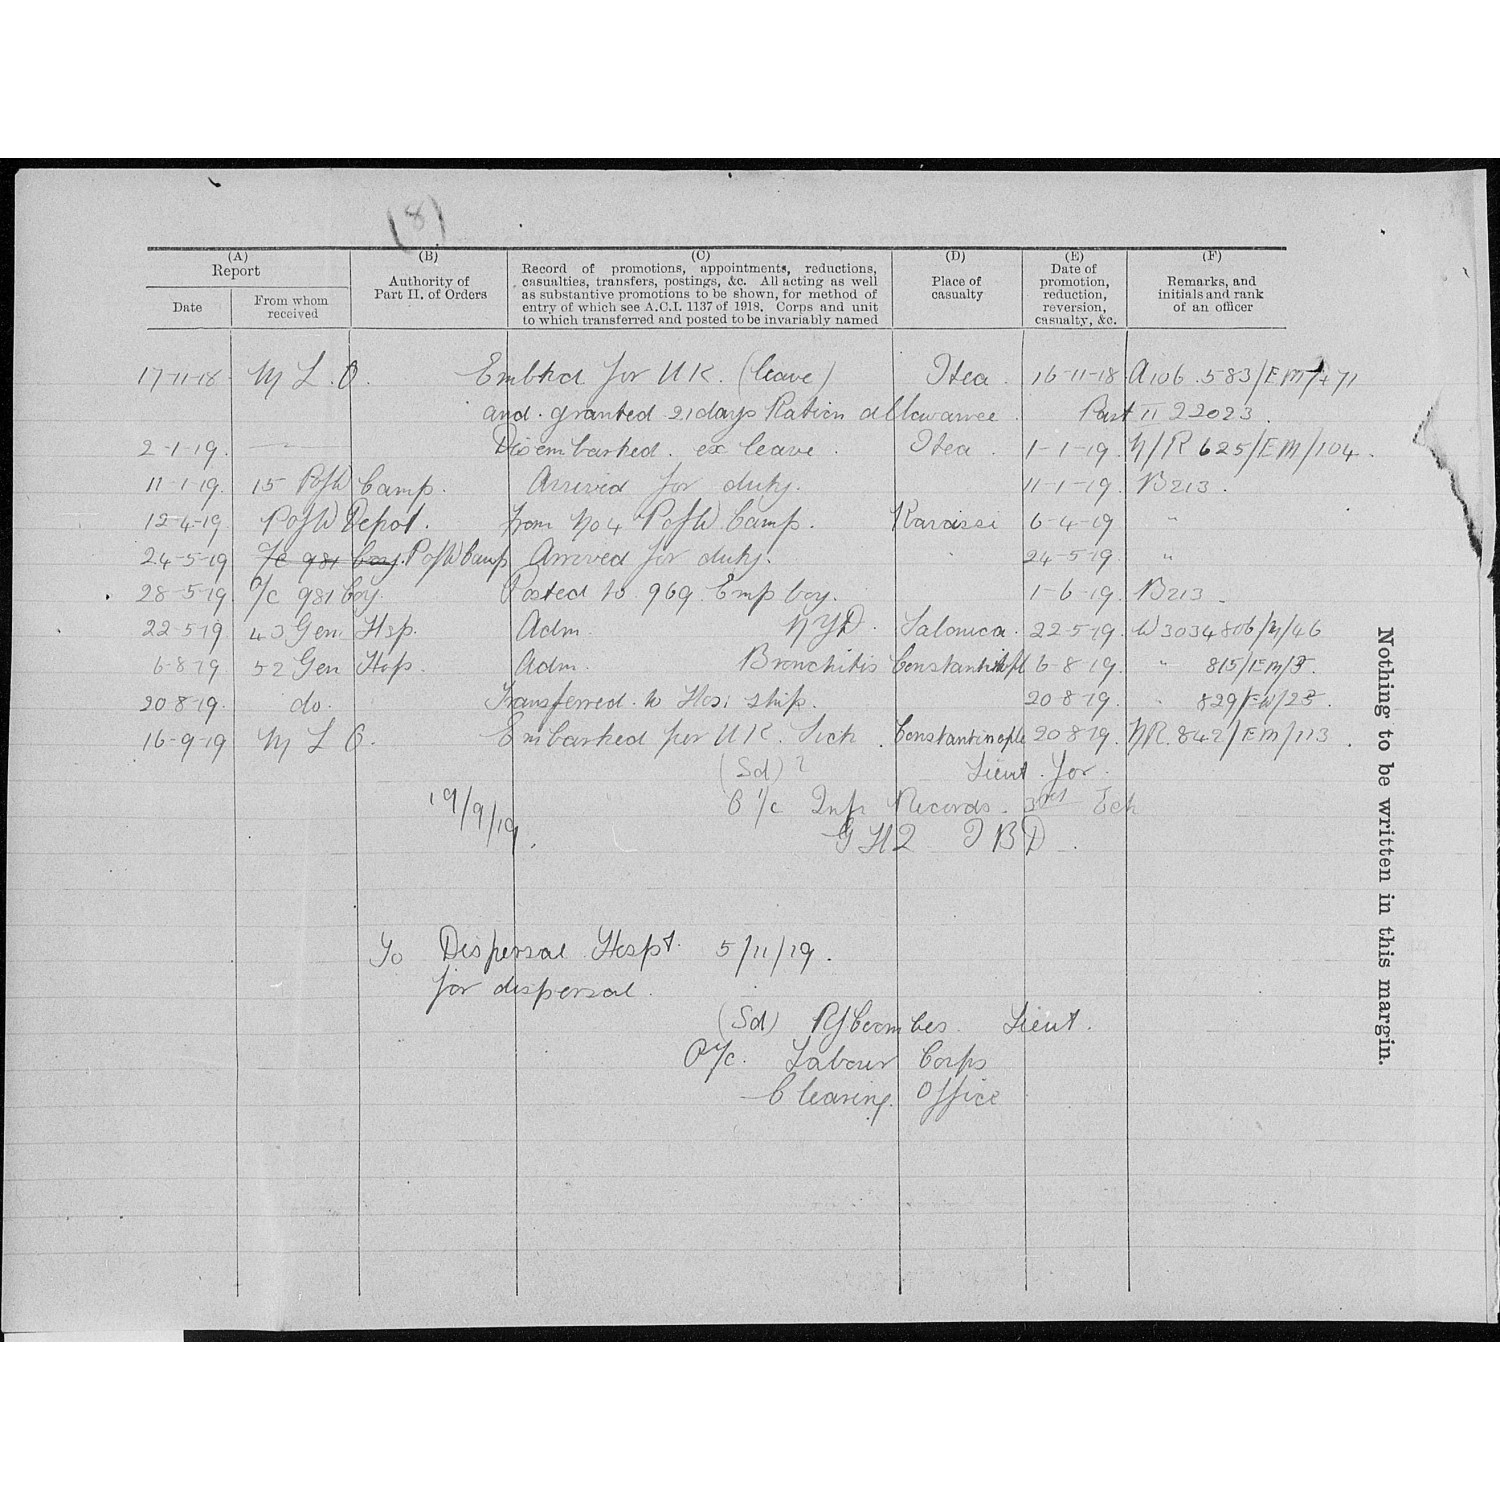 (8)
(A) (B) (C) (D) (E) (F)
Report
Date
From whom
received
Authority of
Part II. of Orders
Record of promotions, appointments, reductions,
casualties, transfers, postings, &c. All acting as well
as substantive promotions to be shown, for method of
entry of which see A.C.I. 1137 of 1918. Corps and unit
to which transferred and posted to be invariably named
Place of
casualty
Date of
promotion,
reduction,
reversion,
casualty, &c.
Remarks, and
initials and rank
of an officer
17-11-18 M L O. Embkd for UK. (leave) Itea 16-11-18 A106.583/EM/471
and granted 21 days Ration allowance. Part II 22023.
2-1-19. Disembarked. ex leave. Itea. 1-1-19. N/R 625/EM/104.
11-1-19. 15 PofW Camp. Arrived for duty. 11-1-19. B213.
12-4-19 PofW Depot. From No 4 PofW Camp. Karassi 6-4-19 "
24-5-19 O/c 981 Coy. PofW Camp Arrived for duty. 24-5-19 "
28-5-19. O/c 981 Coy. Posted to 969 Emp Coy. 1-6-19. B213.
22-5-19 43 Gen Hsp. Adm. NYD. Salonica. 22-5-19. W3034 806/M/46
6-8-19 52 Gen Hosp. Adm. Bronchitis 6-8-19. " 815/EM/
20-8-19. do. Transferred to Hos: ship. 20-8-19. " 829/
16-9-19 M L O. Embarked for UK. Sick. Constantinople 20-8-19. NR. 842/EM/113.
(Sd) ? Lieut. for.
O i/c Inf Records. 3rd Ech
19/9/19. GHQ
To Dispersal Hospt. 5/11/19.
for dispersal.
(Sd) Coombes. Lieut.
O i/c. Labour Corps
Clearing Office
Nothing to be written in this margin.